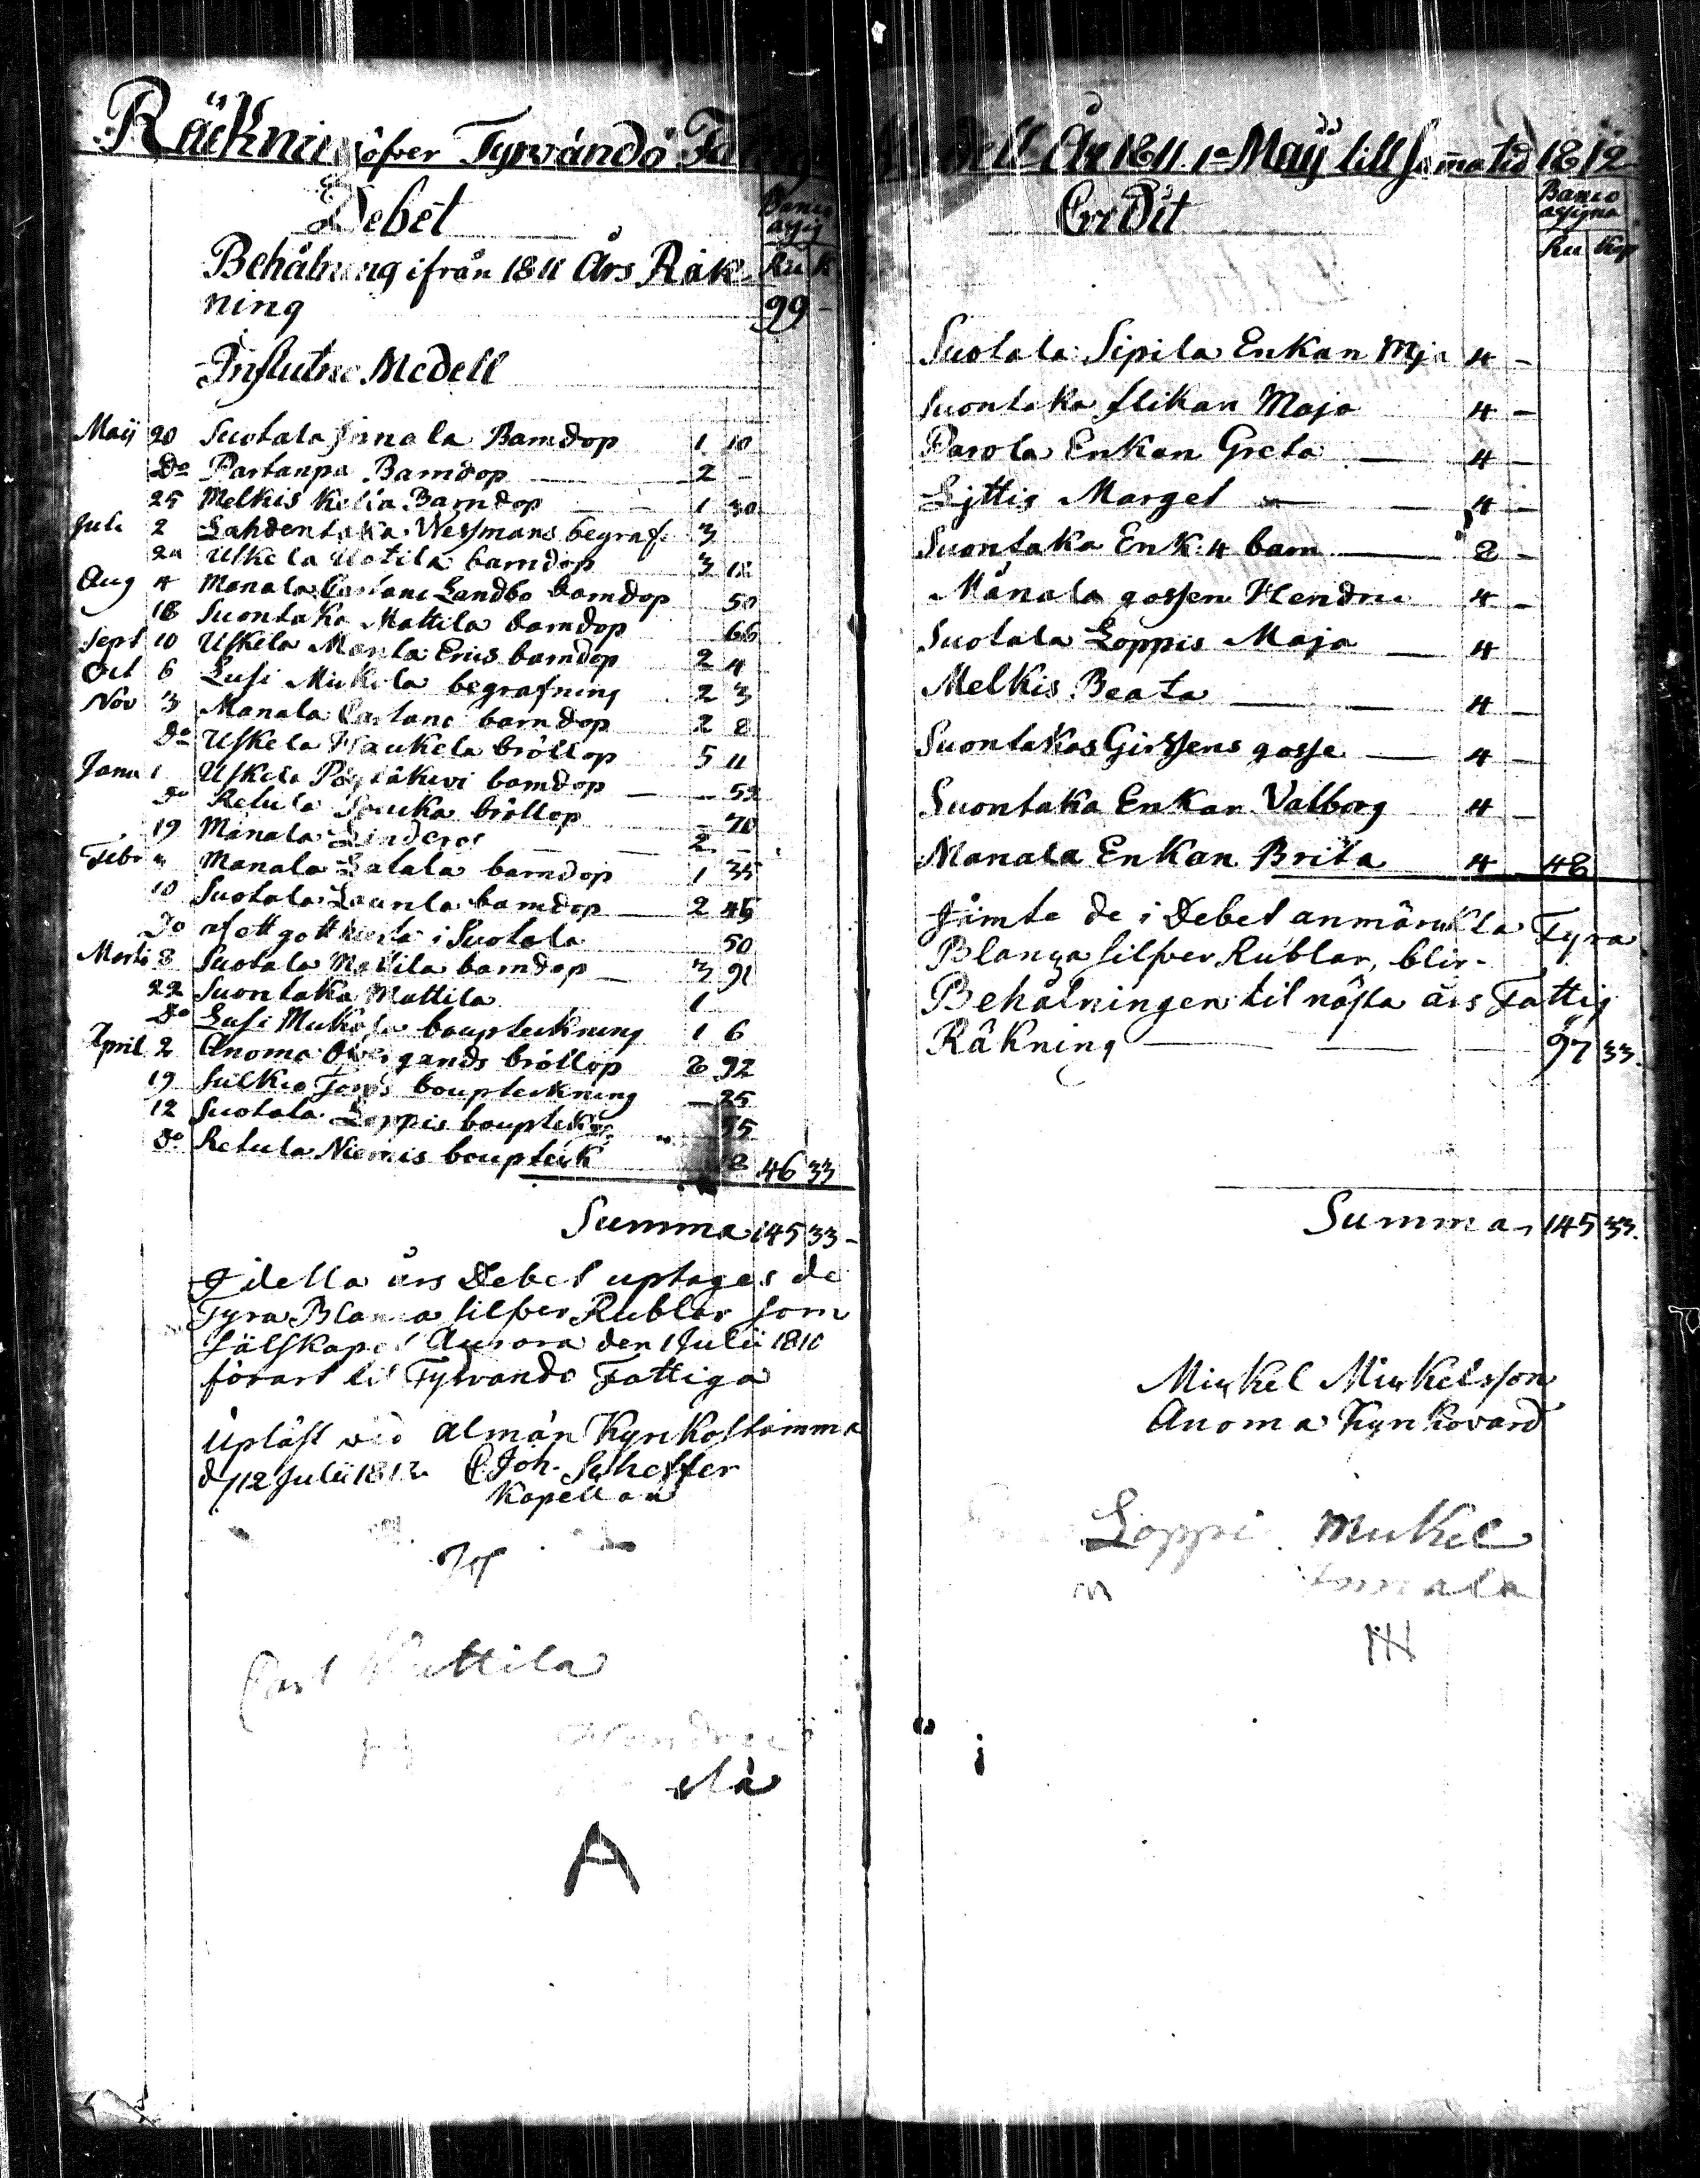 Räkning öfver Tyrvändö
Debet
Banco assig
Behålning ifrån 1811 Års Räk-
Ru K
ning 99 -
Influtne Medell
Maij 20 Suotala Junala Barndop 1 10
Do Partanpä Barndop 2 -
25 Melkis Kelia Barndop 1 30
Juli 2 Lahdentaka Wessmans begraf 3
Uskela Uotila barndop 3 12
Aug 4 Monala Landbo Barndop 50
18 Suontaka Mattila barndop 66
Sept 10 Uskela barndop 2 4
Oct 6 Lusi Mickola begrafning 2 3
Nov 3 Monala barndop 2 8
Do Uskela Haukela bröllop 5 11
Janu 1 Uskela barndop — 52
Do Retula bröllop 70
19 Månala 2 -
Febr Monala Lalala barndop 1 35
10 Suotala barndop — 2 45
Do af ett gott hierta i Suotala 50
Marti 8 Suotala Mattila barndop — 3 91
22 Suontaka Mattila 1
Do Lusi Mickola bouptekning 1 6
April 2 Anoma bröllop 6 92
19 Sulkio bouptekning — 25
12 Suotala Loppis bouptekn 55
Do Retula Niemis bouptek 8 46 33
Summa 145 33 -
I detta års Debet uptages de
Fyra Blanka silfver Rublar som
Sälskapet Aurora den 1 Julii 1810
förärt til Tyrvändö Fattiga
Upläst wid Almän Kyrkostämma
d 12 Julii 1812 Joh. Scheffer
Kapellan
Carl Mattila
A
Medell År 1811 1a Maij till samma tid 1812
Credit
Banco assigna
Ru Kop
Suotala Sipila Enkan Mja 4 -
Suontaka flikan Maja 4 -
Parola Enkan Greta — 4 -
Lyttig Marget — 4 -
Suontaka Enk: 4 barn — 8 -
Månala gossen Hendric 4 -
Suotala Loppis Maja — 4
Melkis Beata — 4 -
Suontakas Girssens gosse — 4 -
Suontaka Enkan Valborg 4 -
Monala Enkan Brita 4 - 48
Jämte de i Debet anmärckta Fyra
Blanka silfver Rublar, blir-
Behålningen til nästa års Fattig
Räkning — 97 33.
Summa 145 33.
Mickel Mickelsson
Anoma Kyrkovärd
Loppi Mickel
Junnala